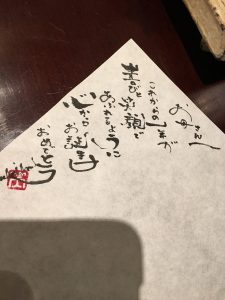 お母さん
これからの1年が
喜びと笑顔で
あふれるように
心から
お誕生日
おめでとう